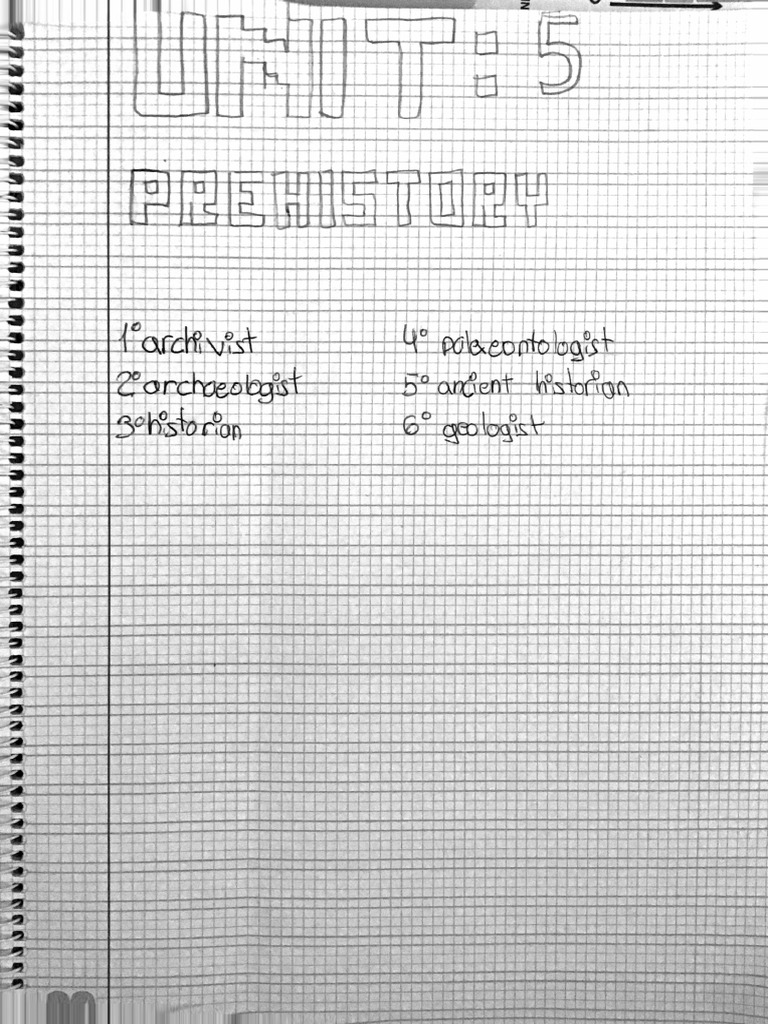 UNIT: 5
PREHISTORY
1º archivist
2º archaeologist
3º historian
4º palaeontologist
5º ancient historian
6º geologist